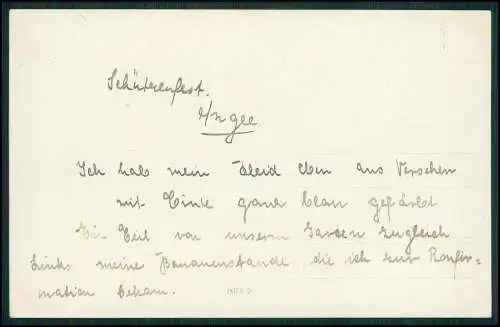 Schützenfest.
Ich hab mein Kleid eben aus Versehen
mit Tinte ganz blau gefärbt
Ein Teil von unserm Garten zugleich
Links meine Bananenstaude die ich zur Konfir=
mation bekam.